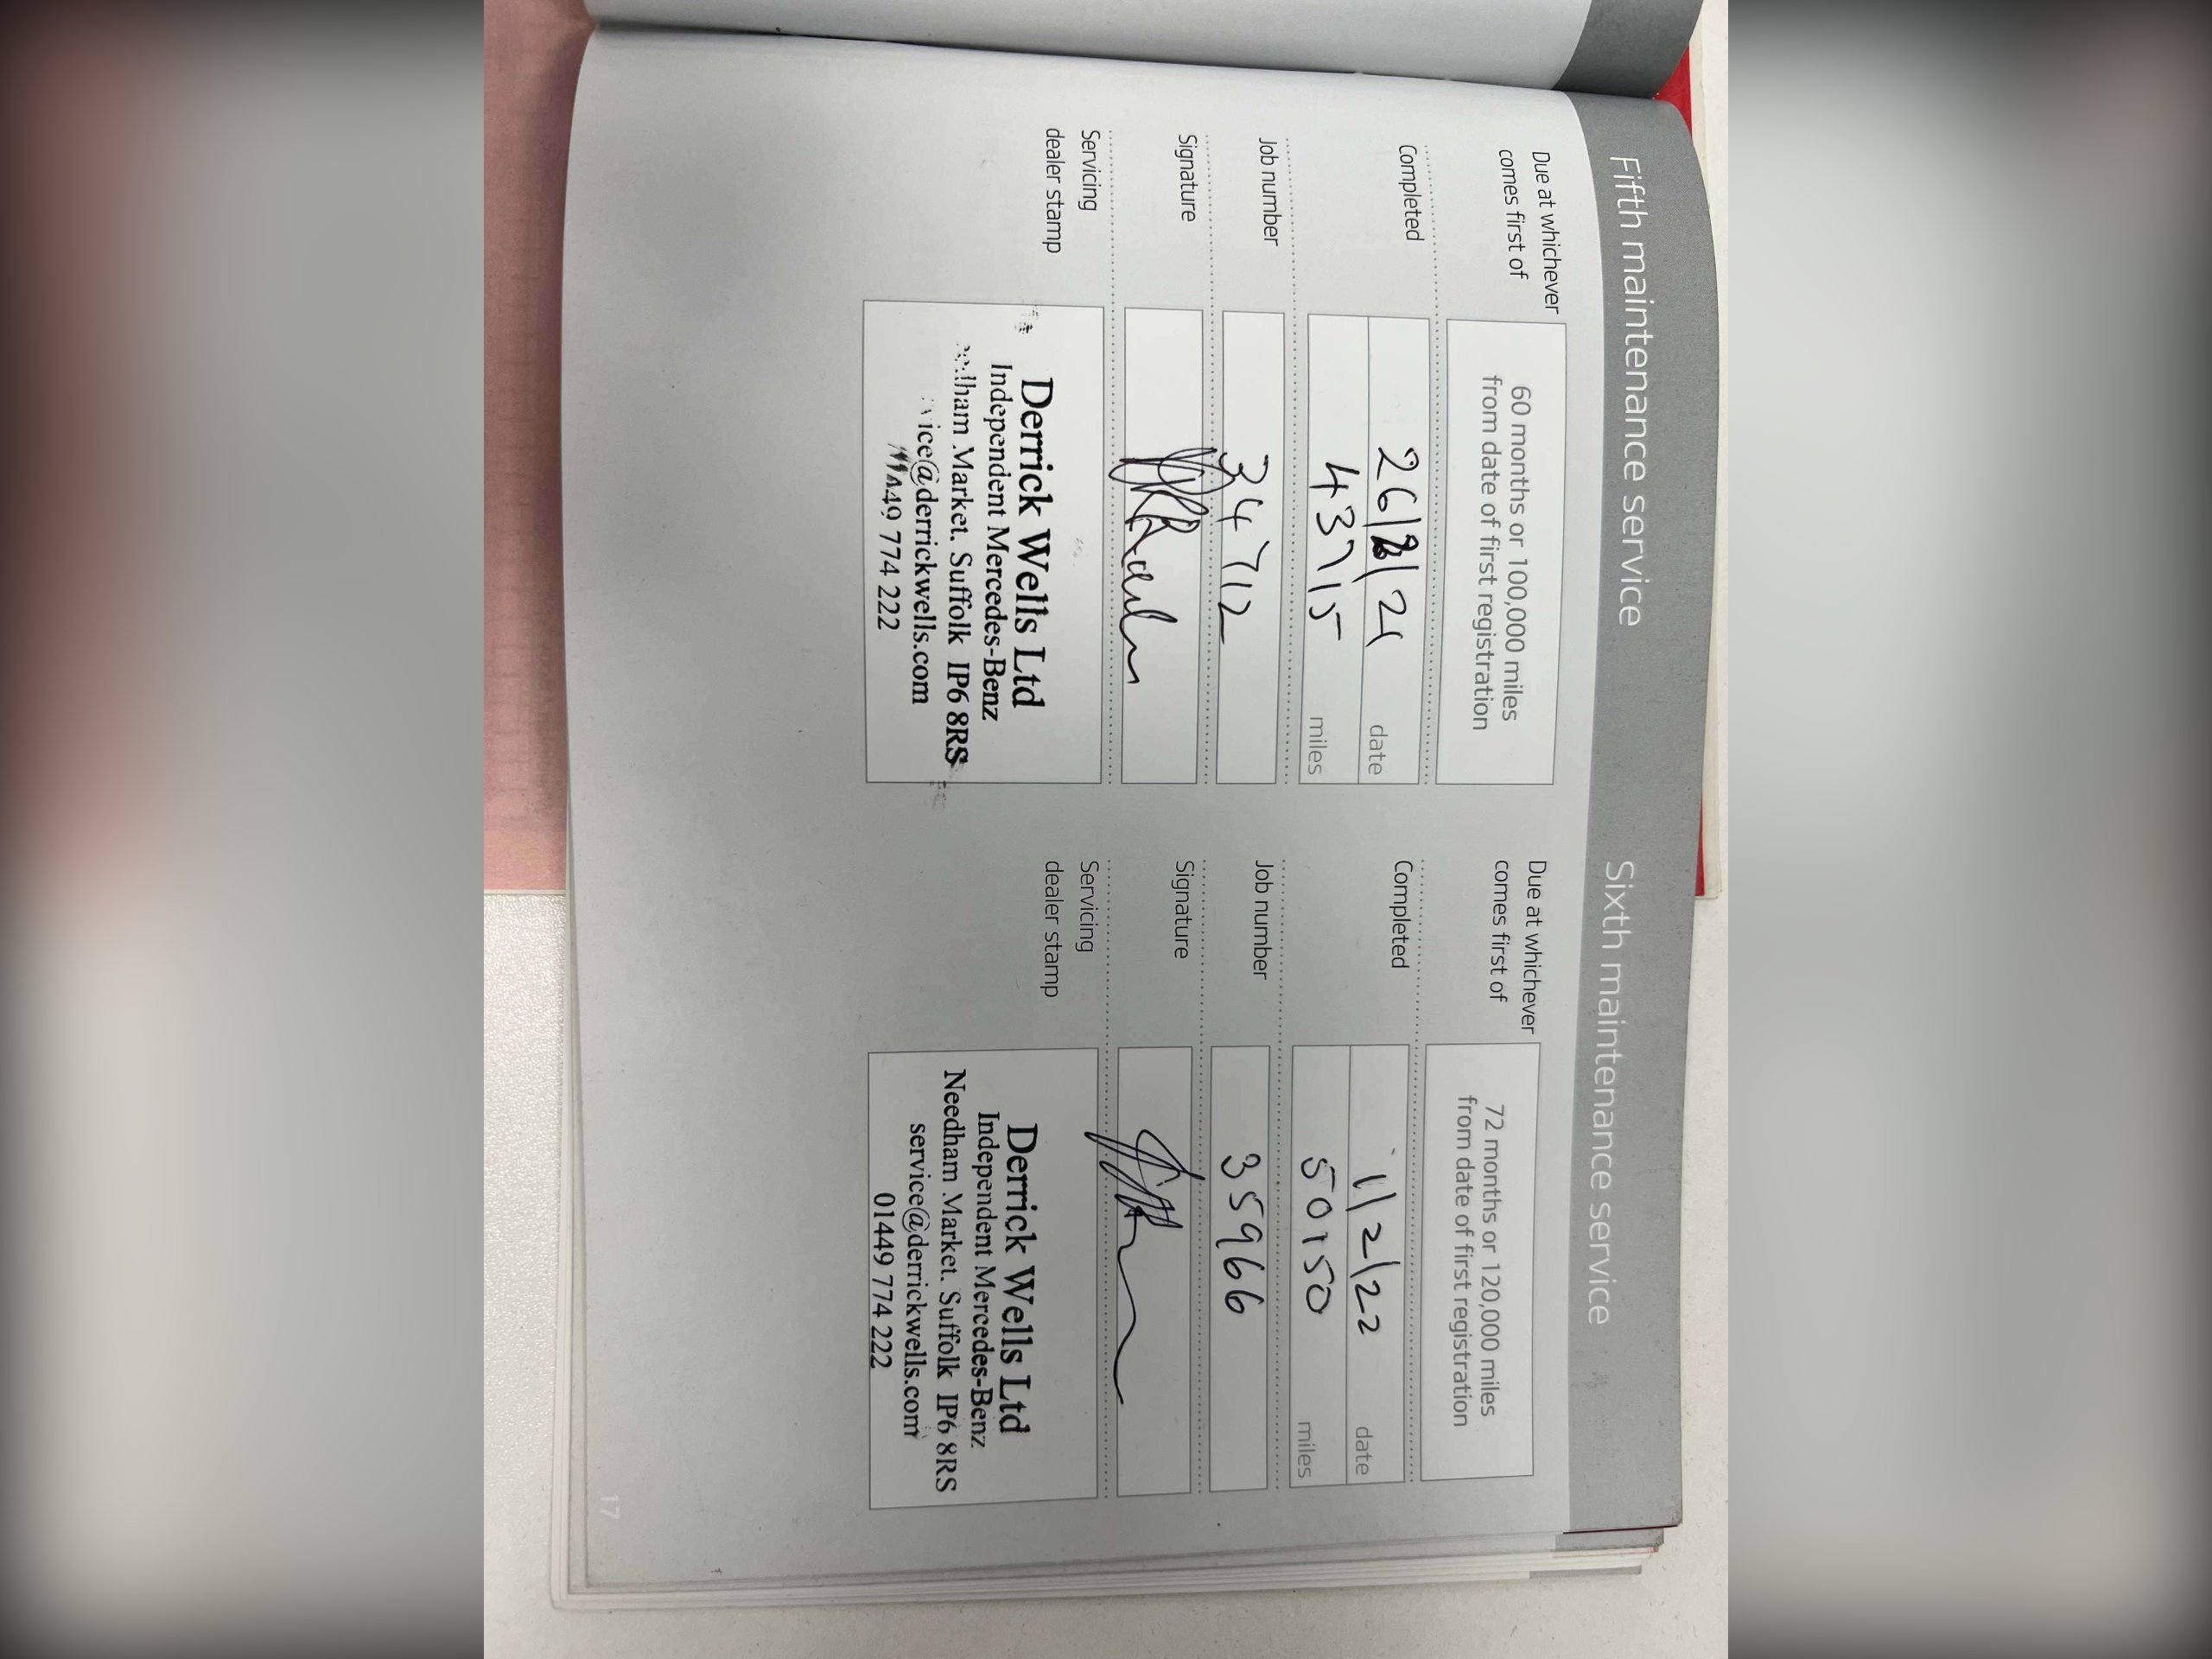 Fifth maintenance service
Due at whichever
comes first of
60 months or 100,000 miles
from date of first registration
Completed
26/2/21 date
43715 miles
Job number
34712
Signature
Servicing
dealer stamp
Derrick Wells Ltd
Independent Mercedes-Benz
Market. Suffolk IP6 8RS
@derrickwells.com
774 222
Sixth maintenance service
Due at whichever
comes first of
72 months or 120,000 miles
from date of first registration
Completed
1/2/22 date
50150 miles
Job number
35966
Signature
Servicing
dealer stamp
Derrick Wells Ltd
Independent Mercedes-Benz
Needham Market. Suffolk IP6 8RS
service@derrickwells.com
01449 774 222
17